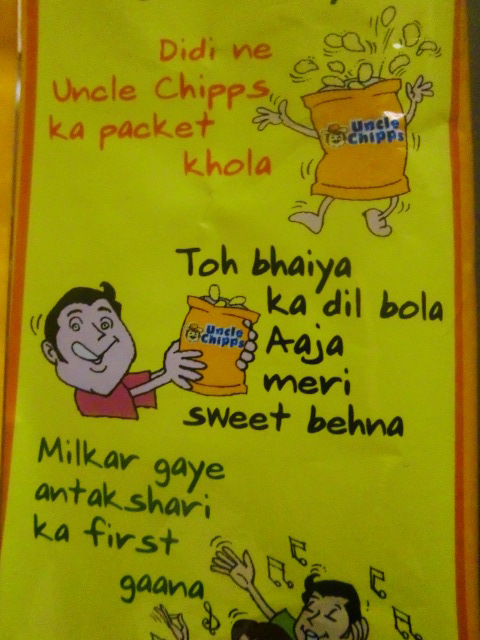 Didi ne
Uncle Chipps
ka packet
khola
Uncle
Chipps
Toh bhaiya
ka dil bola
Aaja
meri
sweet behna
Uncle
Chipps
Milkar gaye
antakshari
ka first
gaana